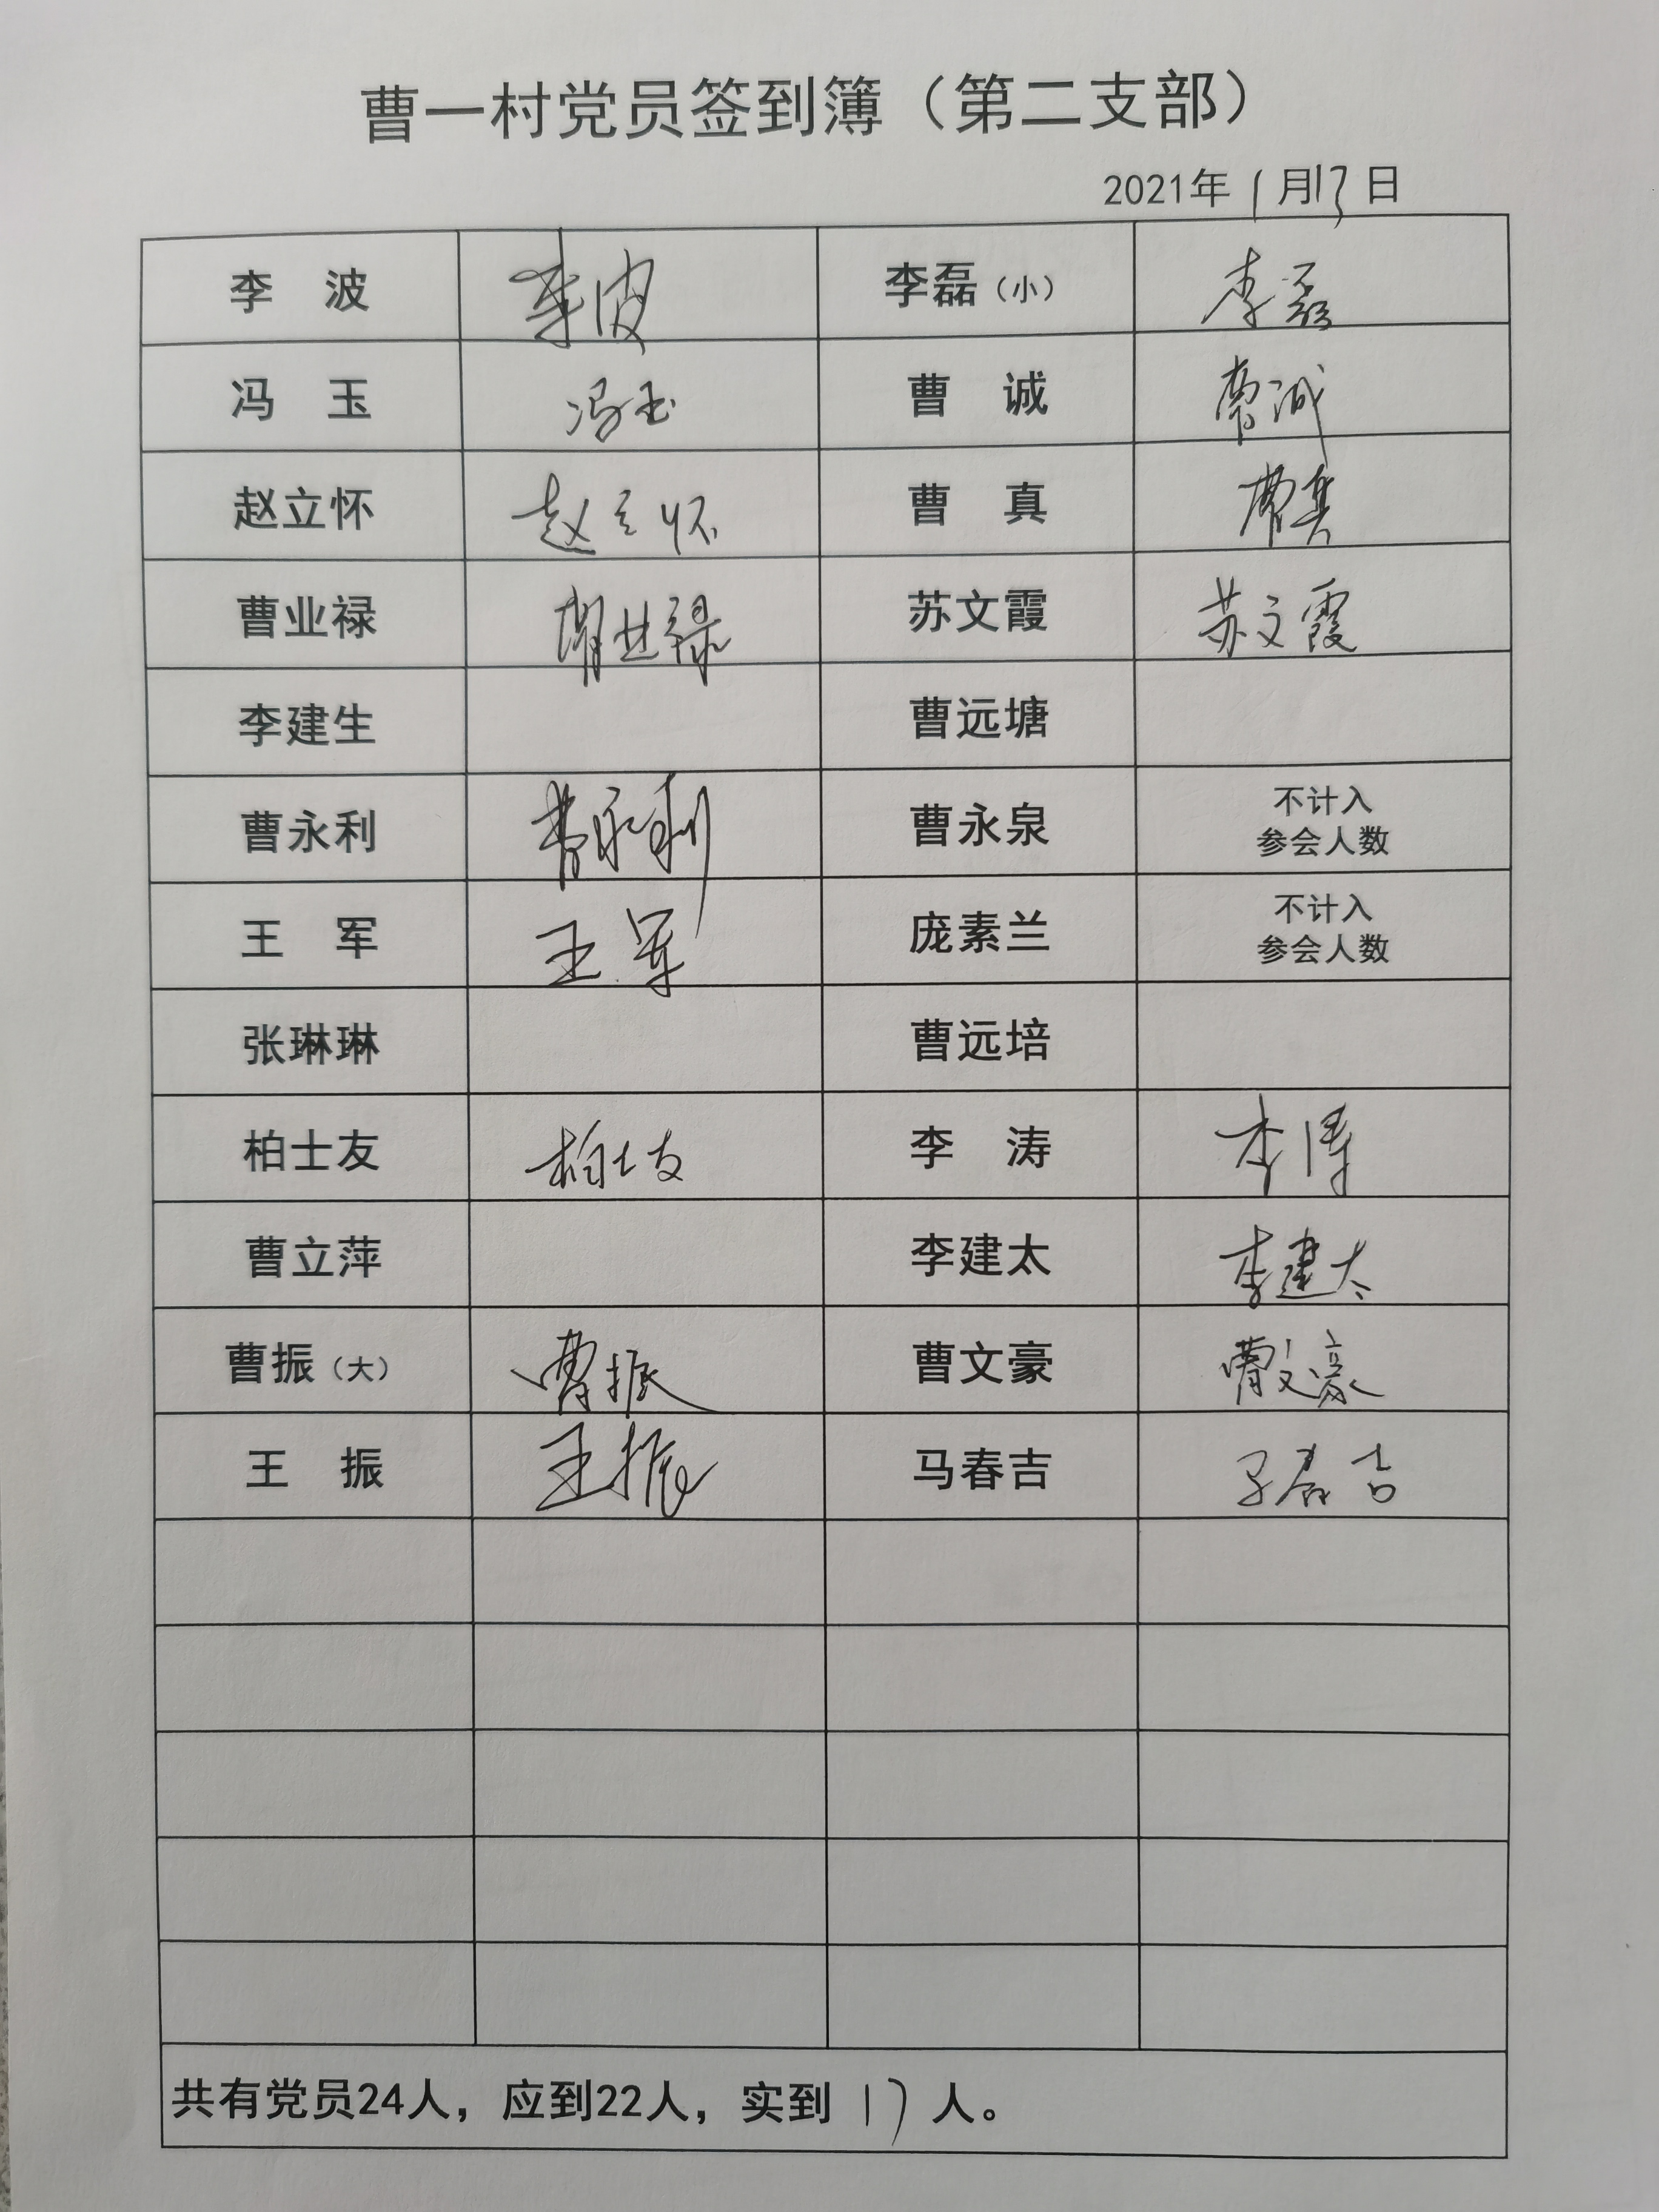 曹一村党员签到簿（第二支部）
2021年 1 月13日
李 波 李波 李磊（小） 李磊
冯 玉 冯玉 曹 诚 曹诚
赵立怀 赵立怀 曹 真 曹真
曹业禄 曹业禄 苏文霞 苏文霞
李建生 曹远塘
曹永利 曹永利 曹永泉 不计入
参会人数
王 军 王军 庞素兰 不计入
参会人数
张琳琳 曹远培
柏士友 柏士友 李 涛 李涛
曹立萍 李建太 李建太
曹振（大） 曹振 曹文豪 曹文豪
王 振 王振 马春吉 马春吉
共有党员24人，应到22人，实到 17 人。